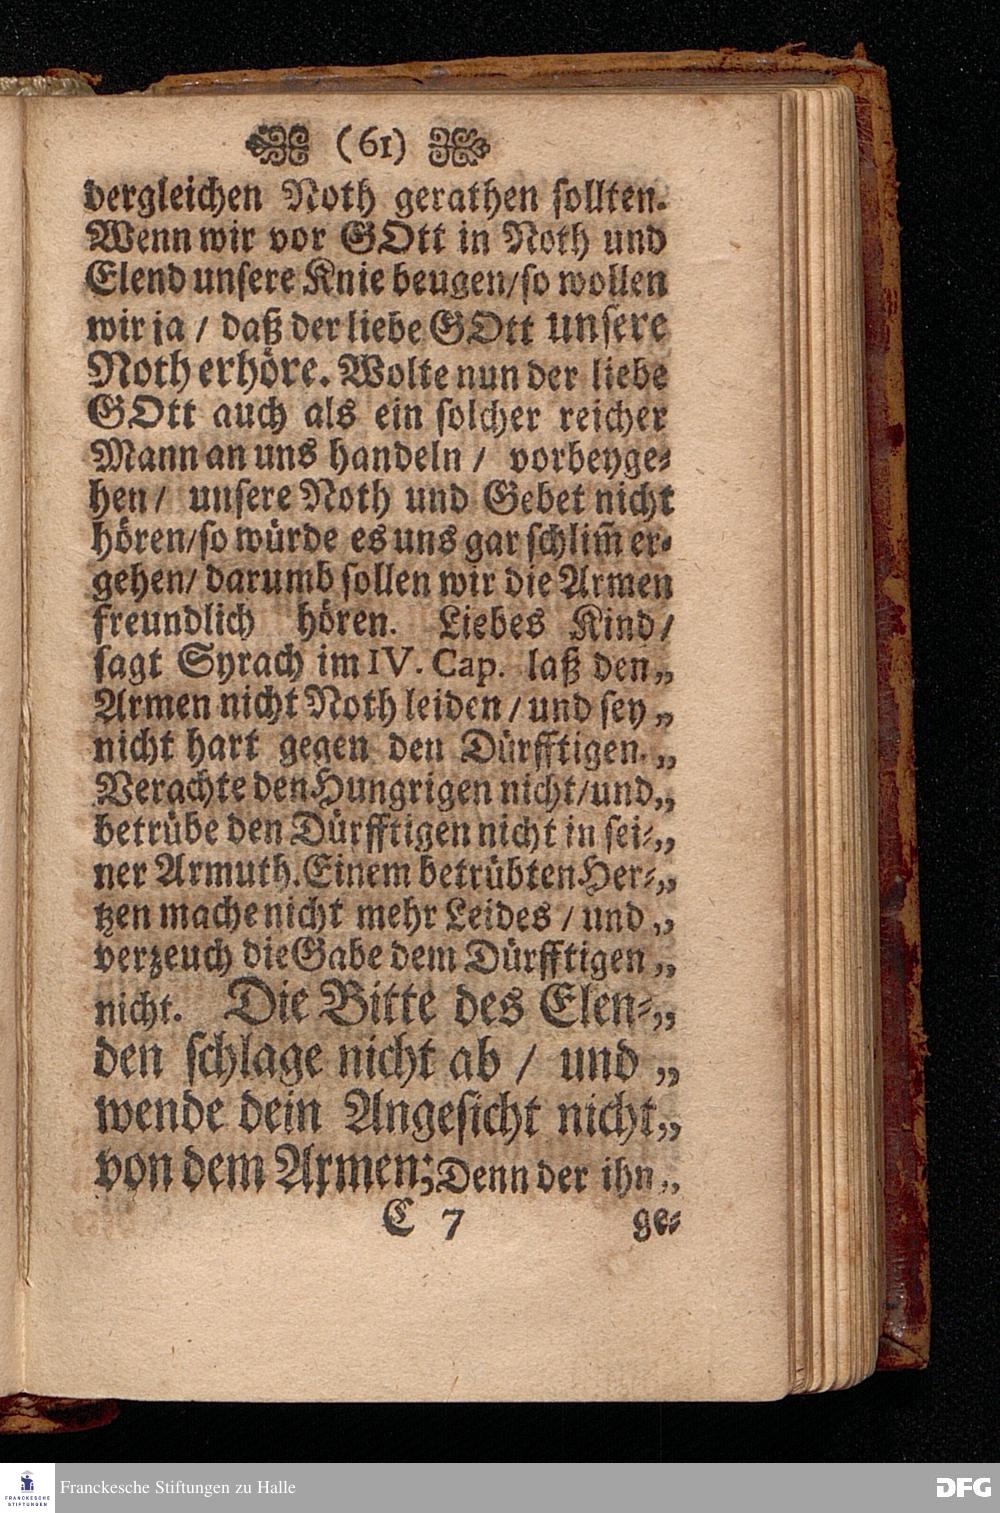 (61)
dergleichen Noth gerathen sollten.
Wenn wir vor GOtt in Noth und
Elend unsere Knie beugen/so wollen
wir ja / daß der liebe GOtt unsere
Noth erhöre. Wolte nun der liebe
GOtt auch als ein solcher reicher
Mann an uns handeln / vorbeyge-
hen / unsere Noth und Gebet nicht
hören/so würde es uns gar schlim̃ er-
gehen/ darumb sollen wir die Armen
freundlich hören. Liebes Kind/
sagt Syrach im IV. Cap. laß den„
Armen nicht Noth leiden / und sey „
nicht hart gegen den Dürfftigen. „
Verachte den Hungrigen nicht/und„
betrübe den Dürfftigen nicht in sei-„
ner Armuth. Einem betrübten Her-„
tzen mache nicht mehr Leides / und „
verzeuch die Gabe dem Dürfftigen „
nicht. Die Bitte des Elen-„
den schlage nicht ab / und „
wende dein Angesicht nicht„
von dem Armen; Denn der ihn „
C 7 ge-
FRANCKESCHE
STIFTUNGEN
Franckesche Stiftungen zu Halle
DFG